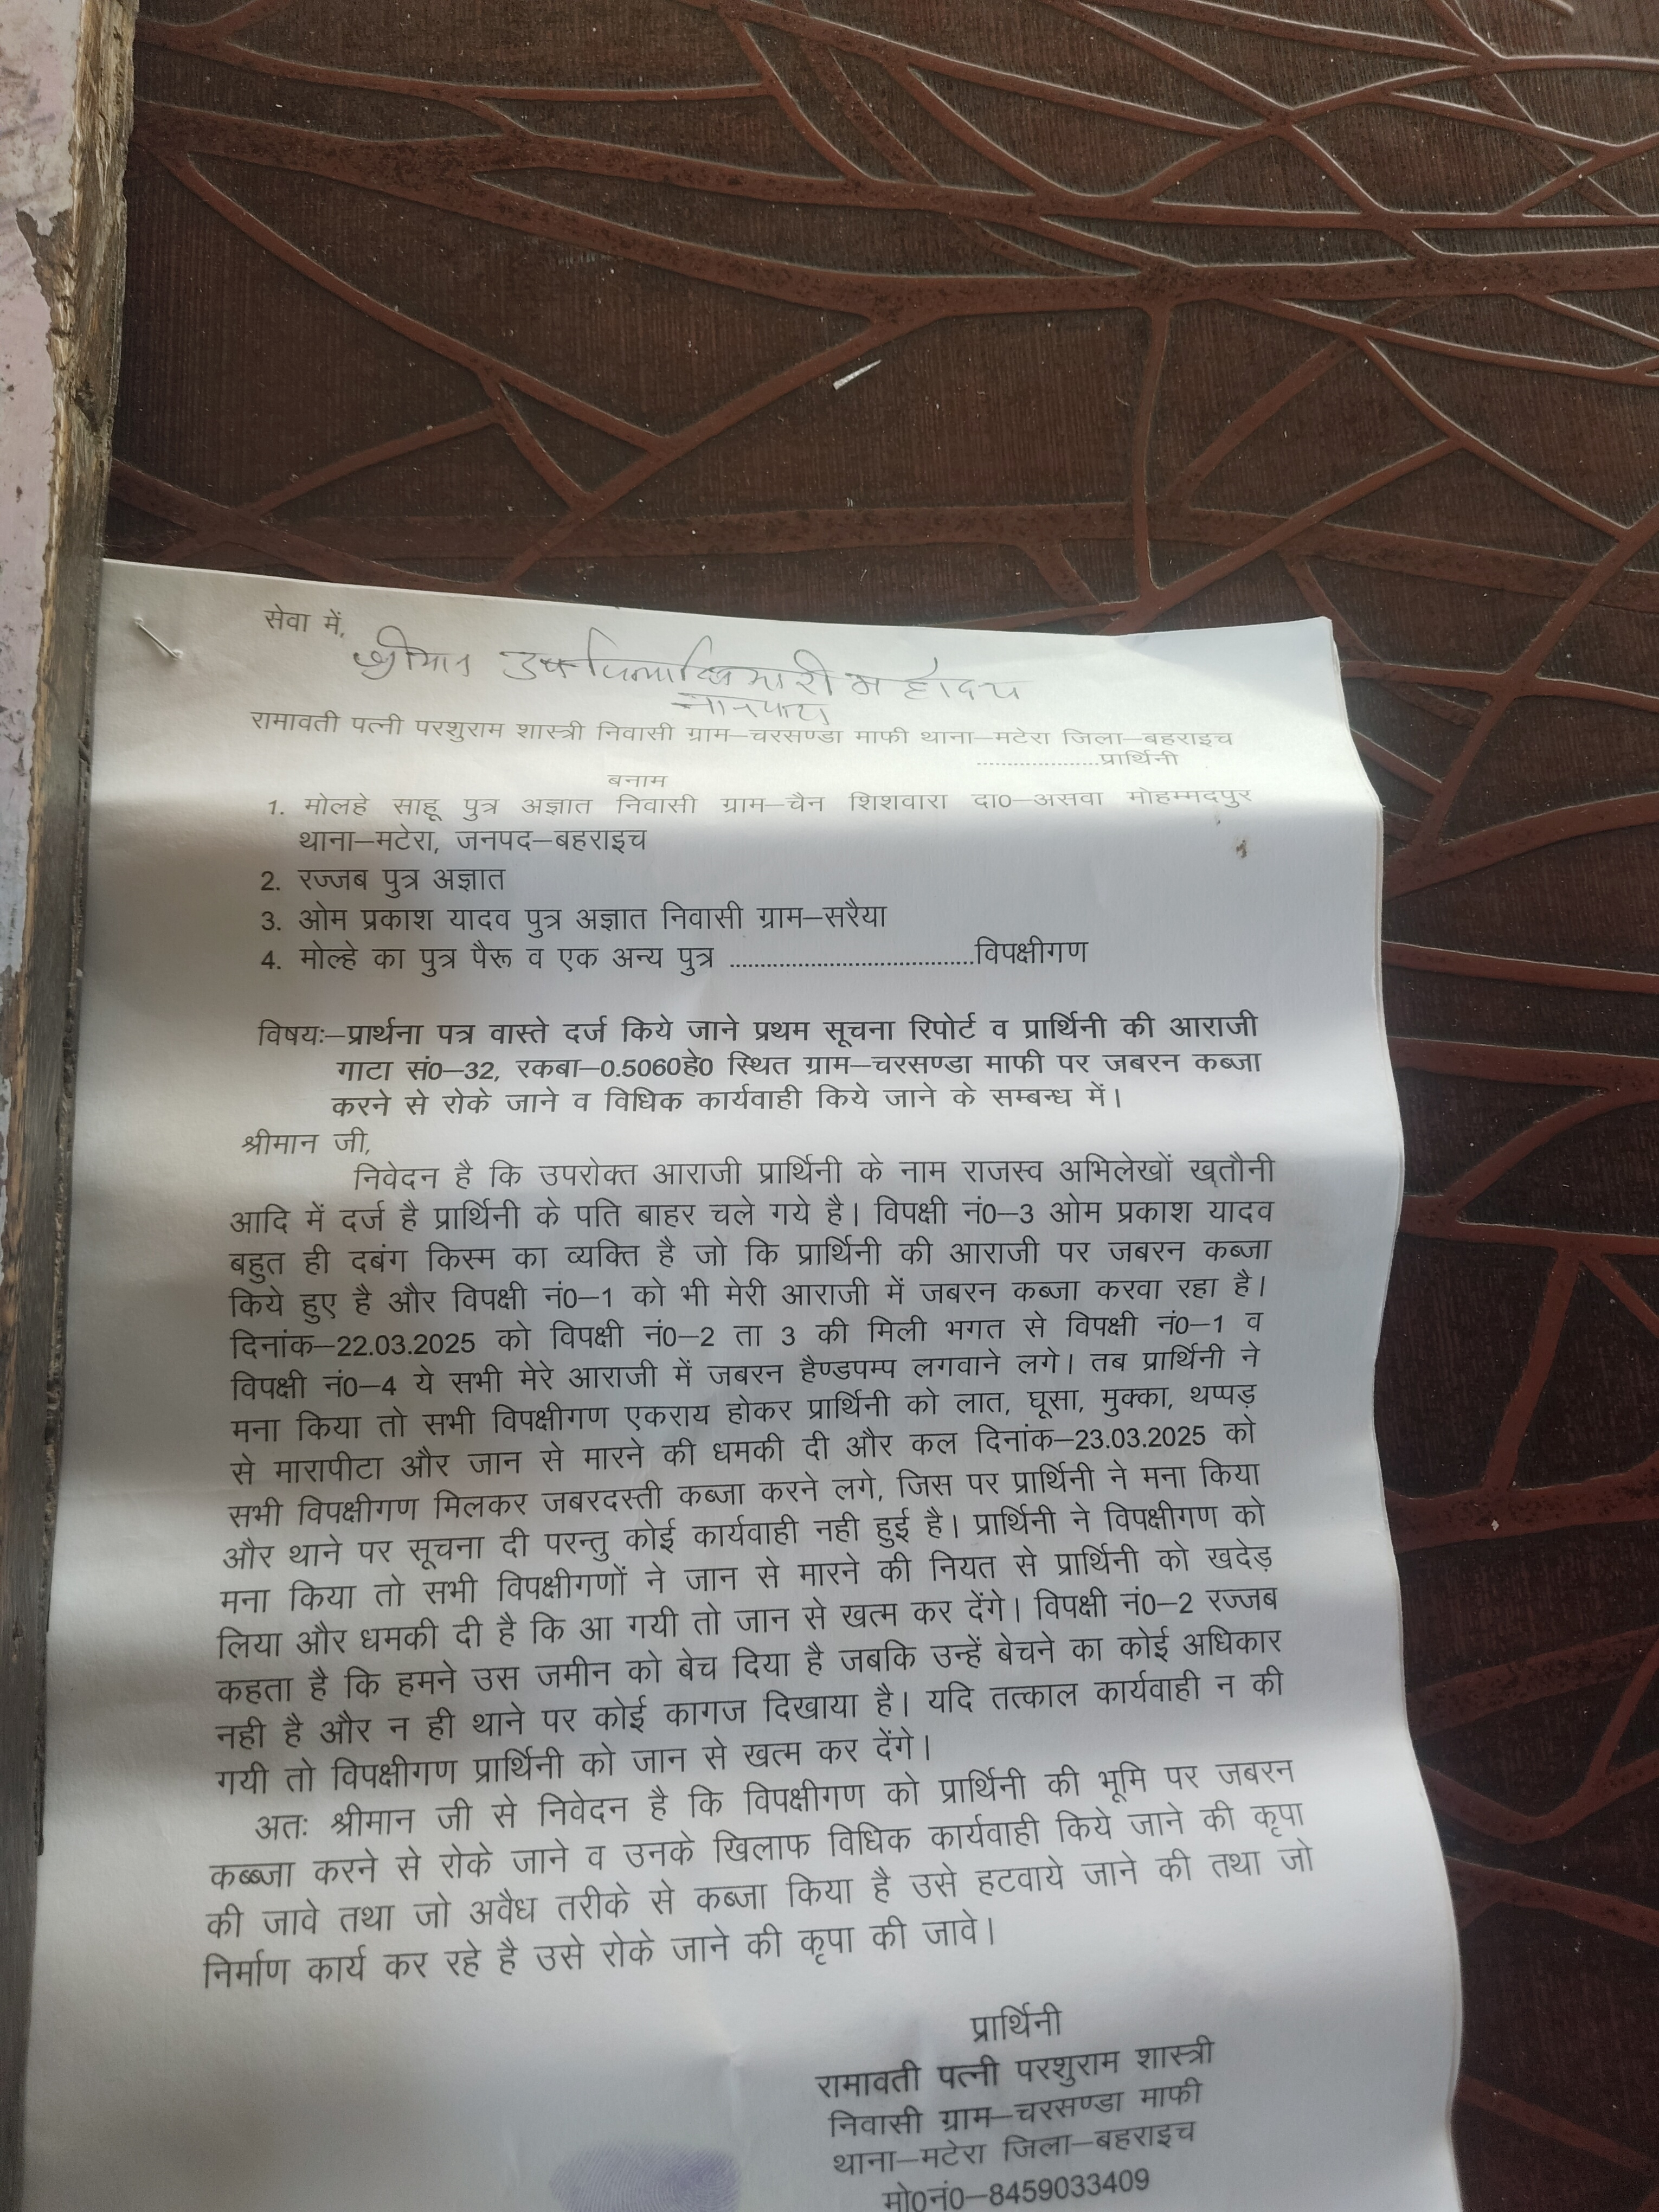 सेवा में,
श्रीमान उपजिलाधिकारी महोदय
नानपारा
रामावती पत्नी परशुराम शास्त्री निवासी ग्राम–चरसण्डा माफी थाना–मटेरा जिला–बहराइच
....................प्रार्थिनी
बनाम
1. मोलहे साहू पुत्र अज्ञात निवासी ग्राम–चैन शिशवारा दा0–असवा मोहम्मदपुर
थाना–मटेरा, जनपद–बहराइच
2. रज्जब पुत्र अज्ञात
3. ओम प्रकाश यादव पुत्र अज्ञात निवासी ग्राम–सरैया
4. मोल्हे का पुत्र पैरू व एक अन्य पुत्र ........................................विपक्षीगण
विषयः–प्रार्थना पत्र वास्ते दर्ज किये जाने प्रथम सूचना रिपोर्ट व प्रार्थिनी की आराजी
गाटा सं0–32, रकबा–0.5060हे0 स्थित ग्राम–चरसण्डा माफी पर जबरन कब्जा
करने से रोके जाने व विधिक कार्यवाही किये जाने के सम्बन्ध में।
श्रीमान जी,
निवेदन है कि उपरोक्त आराजी प्रार्थिनी के नाम राजस्व अभिलेखों ख्तौनी
आदि में दर्ज है प्रार्थिनी के पति बाहर चले गये है। विपक्षी नं0–3 ओम प्रकाश यादव
बहुत ही दबंग किस्म का व्यक्ति है जो कि प्रार्थिनी की आराजी पर जबरन कब्जा
किये हुए है और विपक्षी नं0–1 को भी मेरी आराजी में जबरन कब्जा करवा रहा है।
दिनांक–22.03.2025 को विपक्षी नं0–2 ता 3 की मिली भगत से विपक्षी नं0–1 व
विपक्षी नं0–4 ये सभी मेरे आराजी में जबरन हैण्डपम्प लगवाने लगे। तब प्रार्थिनी ने
मना किया तो सभी विपक्षीगण एकराय होकर प्रार्थिनी को लात, घूसा, मुक्का, थप्पड़
से मारापीटा और जान से मारने की धमकी दी और कल दिनांक–23.03.2025 को
सभी विपक्षीगण मिलकर जबरदस्ती कब्जा करने लगे, जिस पर प्रार्थिनी ने मना किया
और थाने पर सूचना दी परन्तु कोई कार्यवाही नही हुई है। प्रार्थिनी ने विपक्षीगण को
मना किया तो सभी विपक्षीगणों ने जान से मारने की नियत से प्रार्थिनी को खदेड़
लिया और धमकी दी है कि आ गयी तो जान से खत्म कर देंगे। विपक्षी नं0–2 रज्जब
कहता है कि हमने उस जमीन को बेच दिया है जबकि उन्हें बेचने का कोई अधिकार
नही है और न ही थाने पर कोई कागज दिखाया है। यदि तत्काल कार्यवाही न की
गयी तो विपक्षीगण प्रार्थिनी को जान से खत्म कर देंगे।
अतः श्रीमान जी से निवेदन है कि विपक्षीगण को प्रार्थिनी की भूमि पर जबरन
कब्ब्जा करने से रोके जाने व उनके खिलाफ विधिक कार्यवाही किये जाने की कृपा
की जावे तथा जो अवैध तरीके से कब्जा किया है उसे हटवाये जाने की तथा जो
निर्माण कार्य कर रहे है उसे रोके जाने की कृपा की जावे।
प्रार्थिनी
रामावती पत्नी परशुराम शास्त्री
निवासी ग्राम–चरसण्डा माफी
थाना–मटेरा जिला–बहराइच
मो0नं0–8459033409